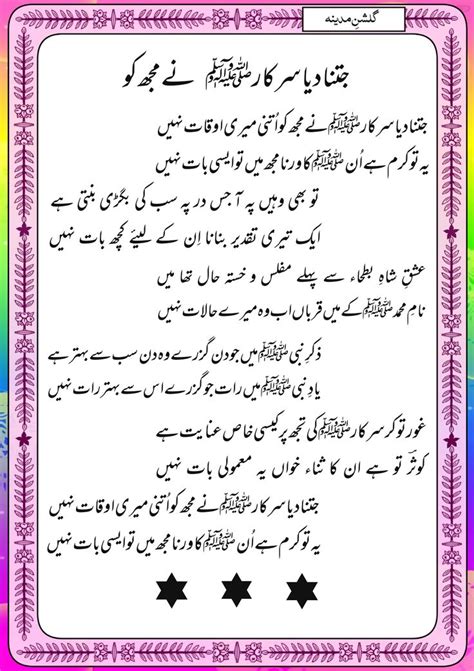 گلشنِ مدینہ
جتنا دیا سرکار ﷺ نے مجھ کو
جتنا دیا سرکار ﷺ نے مجھ کو اُتنی میری اوقات نہیں
یہ تو کرم ہے اُن ﷺ کا ورنا مجھ میں تو ایسی بات نہیں
تو بھی وہیں پہ آ جس در پہ سب کی بگڑی بنتی ہے
ایک تیری تقدیر بنانا اِن کے لیئے کچھ بات نہیں
عشقِ شاہِ بطحاء سے پہلے مفلس و خستہ حال تھا میں
نامِ محمد ﷺ کے میں قرباں اب وہ میرے حالات نہیں
ذکرِ نبی ﷺ میں جو دن گزرے وہ دن سب سے بہتر ہے
یادِ نبی ﷺ میں رات جو گزرے اس سے بہتر رات نہیں
غور تو کر سرکار ﷺ کی تجھ پر کیسی خاص عنایت ہے
کوثرؔ تو ہے ان کا ثناء خواں یہ معمولی بات نہیں
جتنا دیا سرکار ﷺ نے مجھ کو اُتنی میری اوقات نہیں
یہ تو کرم ہے اُن ﷺ کا ورنا مجھ میں تو ایسی بات نہیں